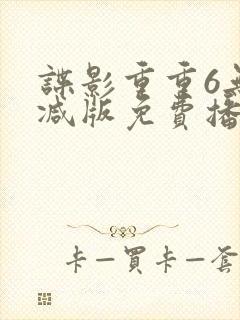 諜影重重6無
减版免費播
卡一買卡一套